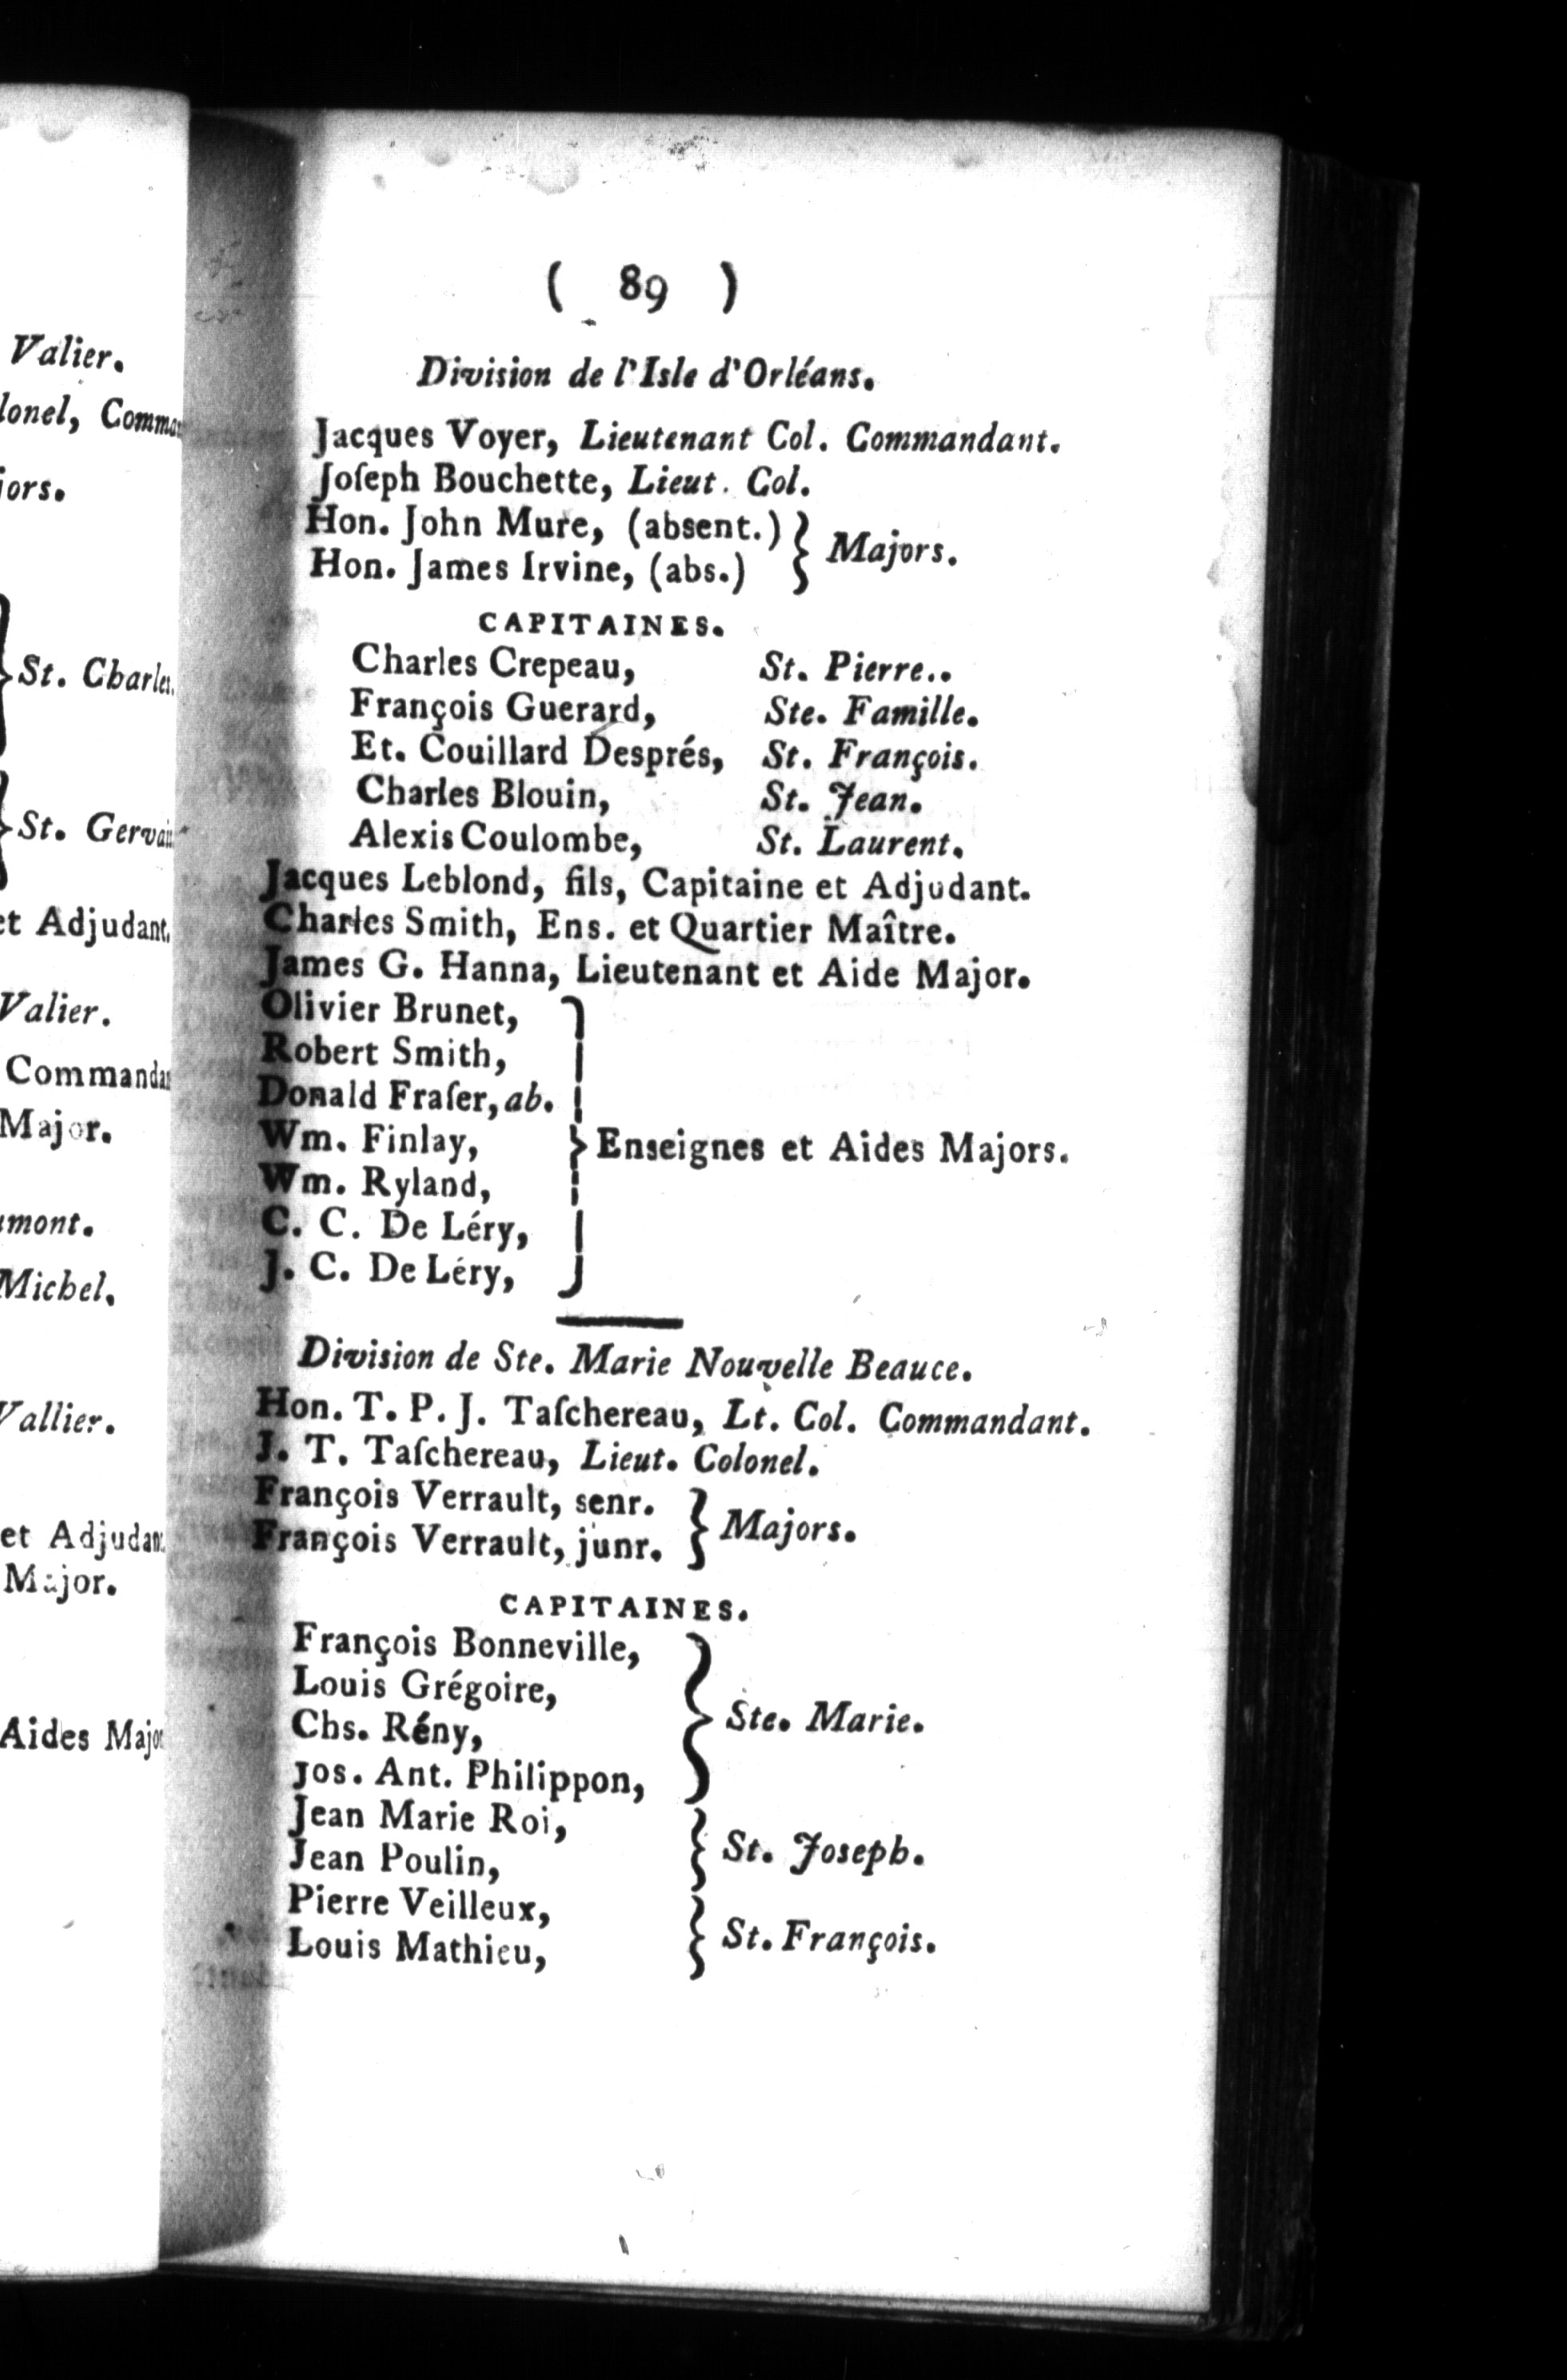 ( 89 )
Division de l'Isle d'Orléans.
Jacques Voyer, Lieutenant Col. Commandant.
Joſeph Bouchette, Lieut. Col.
Hon. John Mure, (absent.) } Majors.
Hon. James Irvine, (abs.)
CAPITAINES.
Charles Crepeau, St. Pierre..
François Guerard, Ste. Famille.
Et. Couillard Després, St. François.
Charles Blouin, St. Jean.
Alexis Coulombe, St. Laurent.
Jacques Leblond, fils, Capitaine et Adjudant.
Charles Smith, Ens. et Quartier Maître.
James G. Hanna, Lieutenant et Aide Major.
Olivier Brunet,
Robert Smith,
Donald Fraſer, ab.
Wm. Finlay, } Enseignes et Aides Majors.
Wm. Ryland,
C. C. De Léry,
J. C. De Léry,
Division de Ste. Marie Nouvelle Beauce.
Hon. T. P. J. Taſchereau, Lt. Col. Commandant.
J. T. Taſchereau, Lieut. Colonel.
François Verrault, senr. } Majors.
François Verrault, junr.
CAPITAINES.
François Bonneville,
Louis Grégoire,
Chs. Rény, } Ste. Marie.
Jos. Ant. Philippon,
Jean Marie Roi, } St. Joseph.
Jean Poulin,
Pierre Veilleux, } St. François.
Louis Mathieu,
Valier.
jors.
St. Charles.
St. Gervais
et Adjudant.
Valier.
Major.
Michel.
Vallier.
et Adjudant
Major.
Aides Major